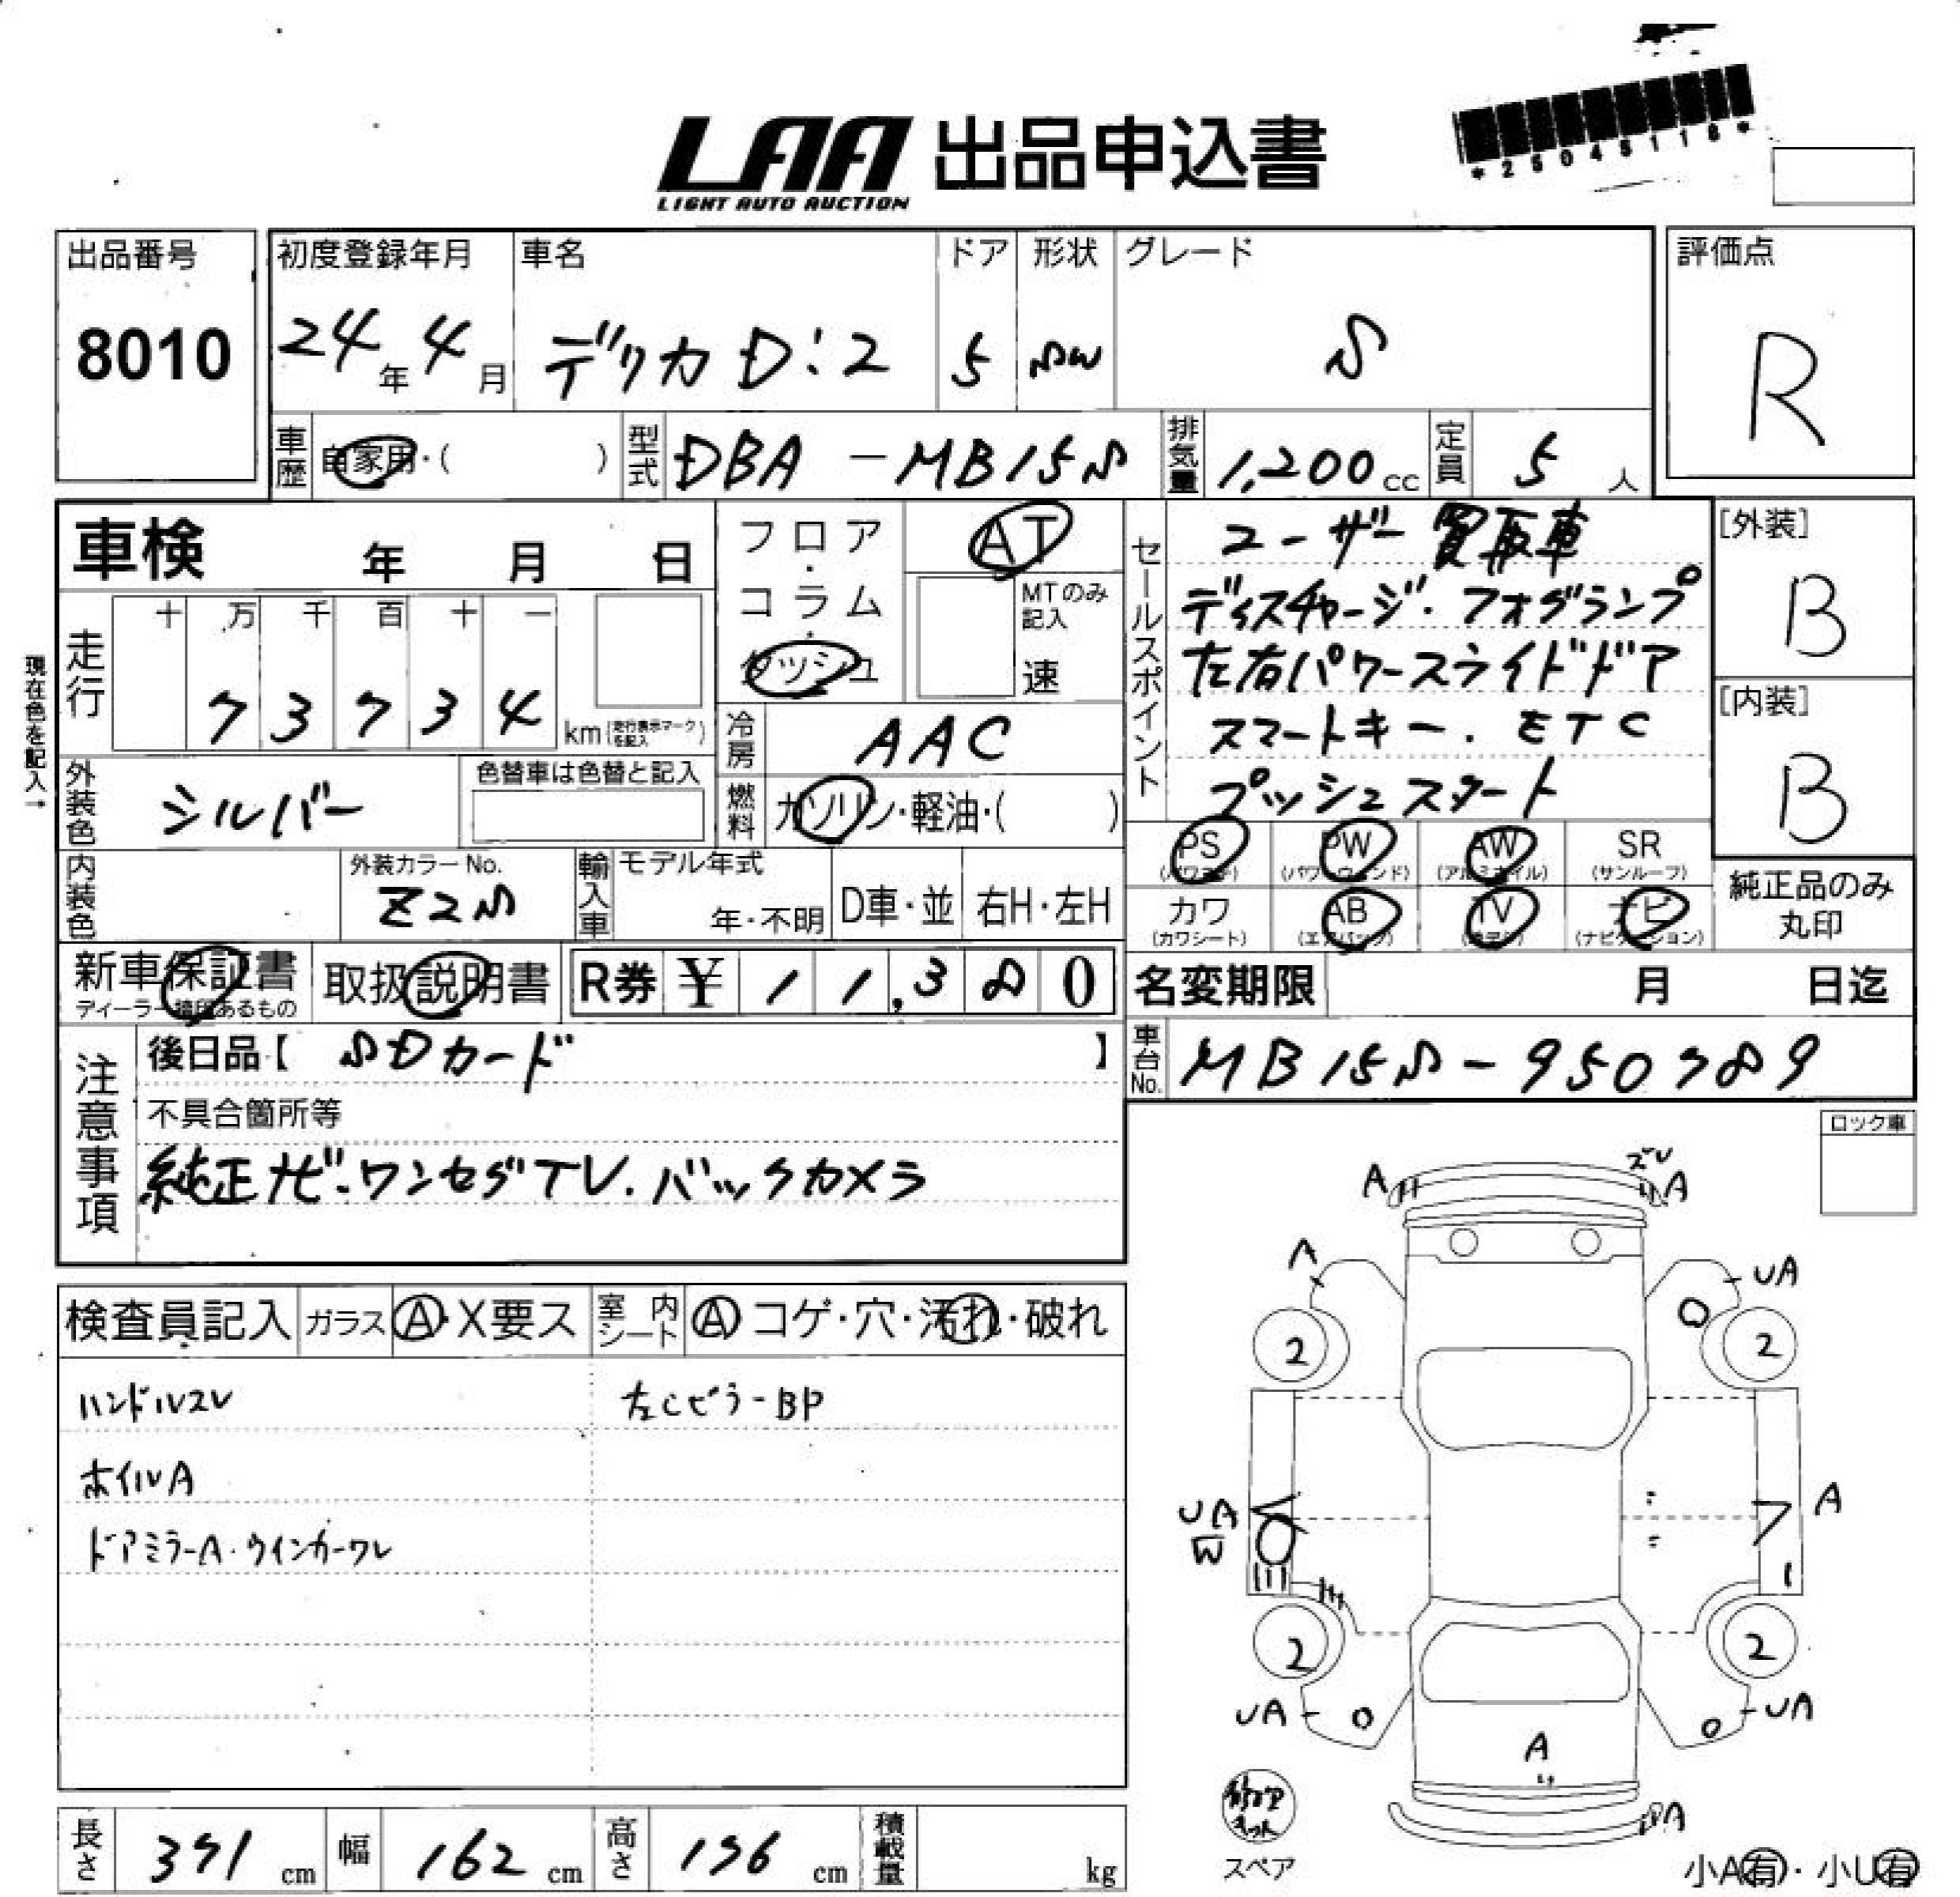 LAA 出品申込書
LIGHT AUTO AUCTION
*25045118*
出品番号
8010
初度登録年月
24年 4月
車名
デリカ D:2
ドア
5
形状
SW
グレード
S
評価点
R
車歴 自家用・( )
型式 DBA - MB15S
排気量 1,200 cc
定員 5 人
車検 年 月 日
フロア・コラム・ダッシュ
AT
MTのみ記入
速
セールスポイント
ユーザー買取車
ディスチャージ・フォグランプ
左右パワースライドドア
スマートキー. ETC
プッシュスタート
[外装]
B
[内装]
B
現在色を記入→
走行
十 万 千 百 十 一
7 3 7 3 4 km (走行表示マークを記入)
冷房 AAC
外装色 シルバー
色替車は色替と記入
燃料 ガソリン・軽油・( )
PS (パワステ) PW (パワーウィンド) AW (アルミホイル) SR (サンルーフ)
カワ (カワシート) AB (エアバック) TV ナビ (ナビゲーション)
純正品のみ丸印
内装色
外装カラーNo.
Z2S
輸入車 モデル年式
年・不明 D車・並 右H・左H
新車保証書
取扱説明書
R券 ¥ 11,380
名変期限 月 日迄
車台No. MB15S-950789
注意事項
後日品【 SDカード 】
不具合箇所等
純正ナビ・ワンセグTV. バックカメラ
ロック車
検査員記入 ガラス A・X要ス 室内シート A コゲ・穴・汚れ・破れ
ハンドルスレ
左Cピラ-BP
ホイルA
ドアミラーA・ウインカーワレ
A ズレ A
A UA
2 2
UA
W
A
2 2
UA UA
A
A
修理キット
スペア
小A有・小U有
長さ 391 cm
幅 162 cm
高さ 156 cm
積載量 kg